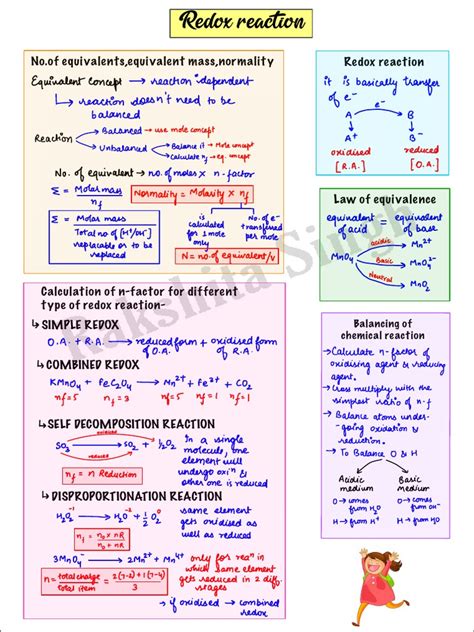 Redox reaction
No.of equivalents,equivalent mass,normality
Equivalent Concept → reaction dependent
↳ reaction doesn't need to be balanced
Reaction
Balanced → use mole concept
Unbalanced
Balance it → Mole concept
Calculate nf → eq. concept
No. of equivalent → no.of moles × n-factor
E = Molar mass / nf
Normality = Molarity × nf
E = Molar mass / Total no of [H+/OH-] replacable or to be replaced
is calculated for 1 mole only
No.of e- transferred per mole
N = no.of equivalent/v
Redox reaction
it is basically transfer of e-
A e- B
A+ B-
oxidised reduced
[R.A.] [O.A.]
Law of equivalence
equivalent of acid = equivalent of base
MnO4-
acidic Mn2+
Basic MnO4 2-
Neutral MnO2
Calculation of n-factor for different
type of redox reaction-
↳ SIMPLE REDOX
O.A. + R.A. → reduced form of O.A. + oxidised form of R.A.
↳ COMBINED REDOX
KMnO4 + FeC2O4 → Mn2+ + Fe3+ + CO2
nf=5 nf=3 nf=5 nf=1 nf=1
↳ SELF DECOMPOSITION REACTION
SO3 → SO2 + 1/2 O2
oxidised
reduced
nf = n Reduction
in a single
molecule, one
element will
undergo oxin &
other one is reduced
↳ DISPROPORTIONATION REACTION
H2O2-1 → H2O-2 + 1/2 O2 0
nf = no × nR / no + nR
same element
gets oxidised as
well as reduced
3MnO4- → 2Mn2+ + Mn4+
n = total charge / total = 2(7-2)+1(7-4) / 3
only for rean in
which same element
gets reduced in 2 diff.
stages
→ if oxidised → combined redox
Balancing of
chemical reaction
→ Calculate n-factor of
oxidising agent & reducing
agent.
→ Cross multiply with the
simplest ratio of n-f
→ Balance atoms under-
going oxidation &
reduction.
→ To Balance O & H
Acidic medium
Basic medium
O → comes from H2O
H → from H+
O → comes from OH-
H → from H2O
Rakshita Singh